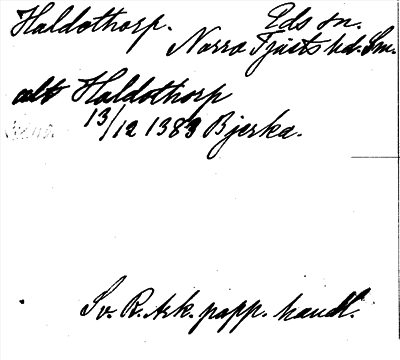 Haldothorp. Eds sn.
Norra Tjusts hd. Sm.
alt Haldothorp
13/12 1383 Bjerka.
Sv. R. Ark. papp. handl.